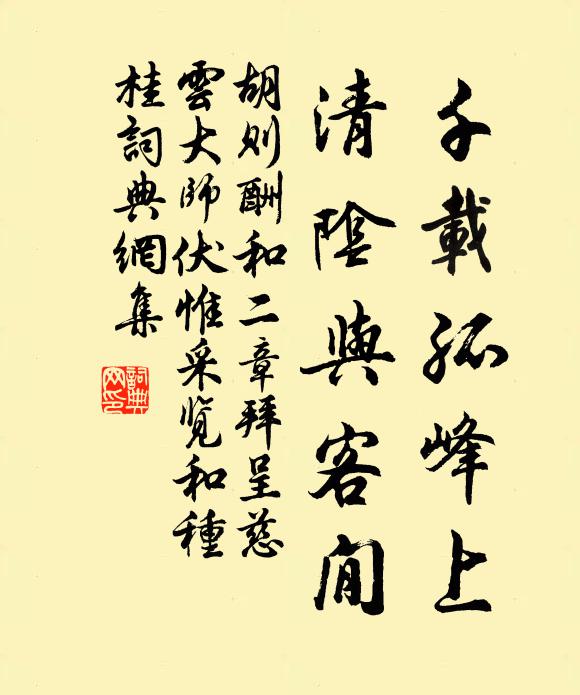 千載孤峰上
清陰與客閒
胡則酬和二章拜呈慈
雲大師伏惟采覽和種
桂詞典網集
詞典網印